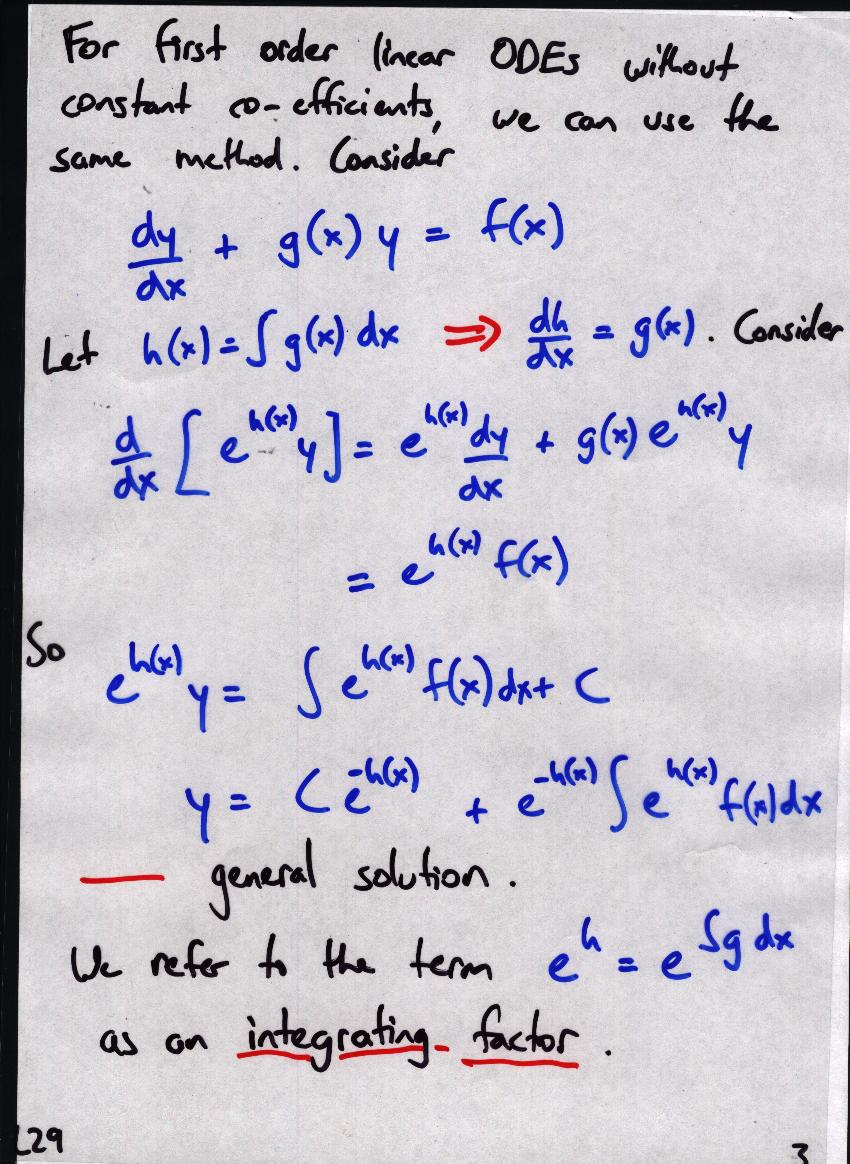 For first order linear ODEs without
constant co-efficients, we can use the
same method. Consider
dy/dx + g(x) y = f(x)
Let h(x) = ∫ g(x) dx ⇒ dh/dx = g(x). Consider
d/dx [ e^{h(x)} y ] = e^{h(x)} dy/dx + g(x) e^{h(x)} y
= e^{h(x)} f(x)
So
e^{h(x)} y = ∫ e^{h(x)} f(x) dx + C
y = C e^{-h(x)} + e^{-h(x)} ∫ e^{h(x)} f(x) dx
— general solution.
We refer to the term e^h = e^{∫g dx}
as an integrating factor.
L29 3